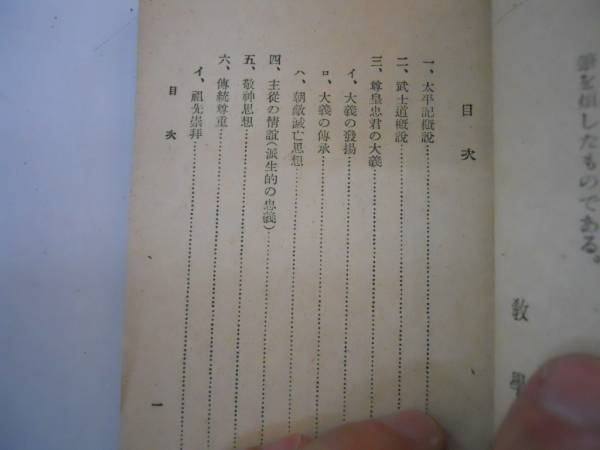 を垣したものである。
敎
目次
一、太平記槪說
二、武士道槪說
三、尊皇忠君の大義
イ、大義の發揚
ロ、大義の傳承
ハ、朝敵滅亡思想
四、主從の情誼(派生的の忠義)
五、敬神思想
六、傳統尊重
イ、祖先崇拜
目次
一